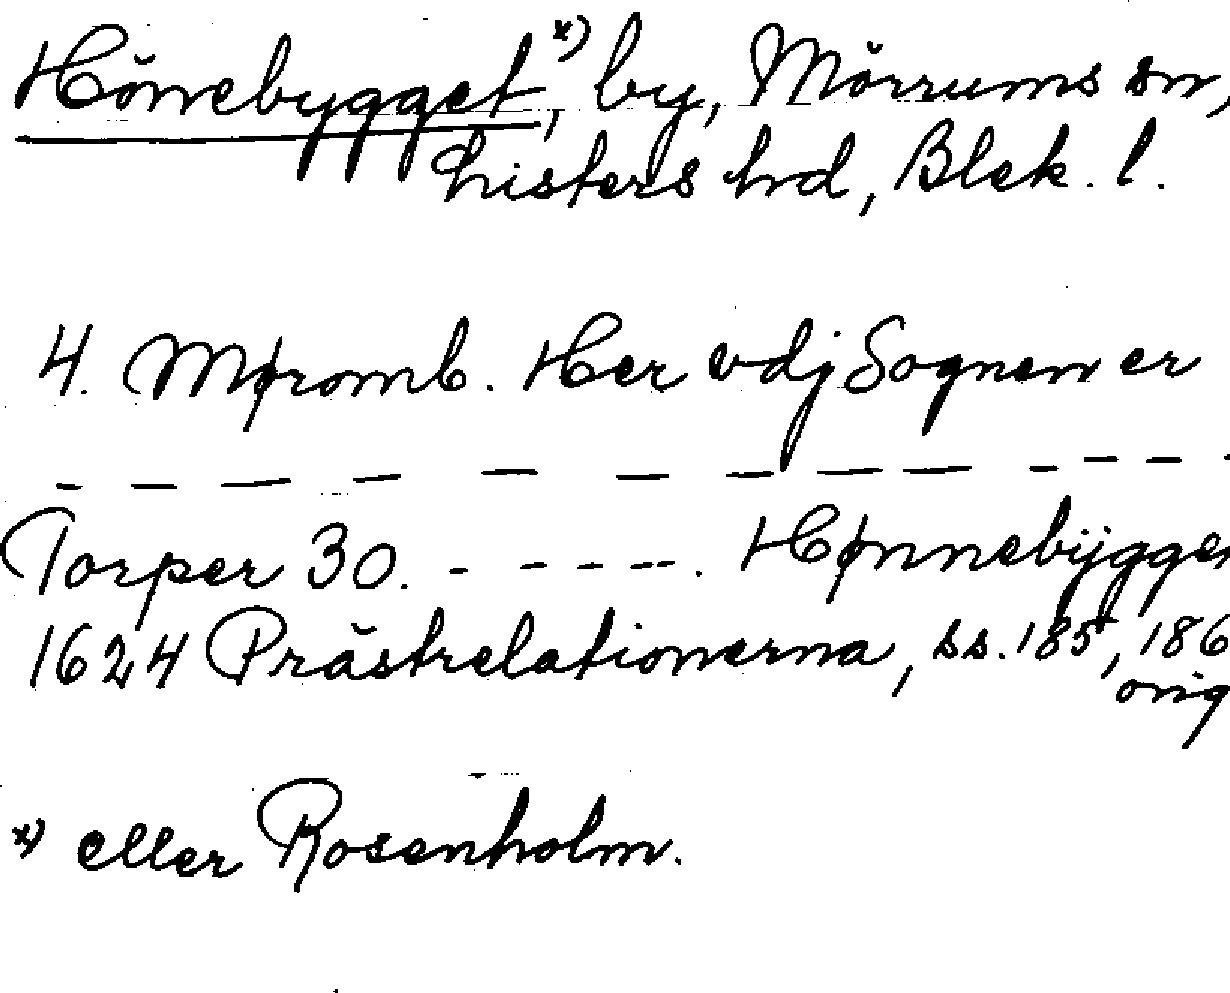 Hönebygget, x) by, Mörrums sn,
Listers hd, Blek. l.
4. Møromb. Her vdj Sognen er
— — — — — — — — — — — — —
Torper 30. - - - - - -. Hønnebÿgge
1624 Prästrelationerna, ss. 185, 186
orig
x) eller Rosenholm.